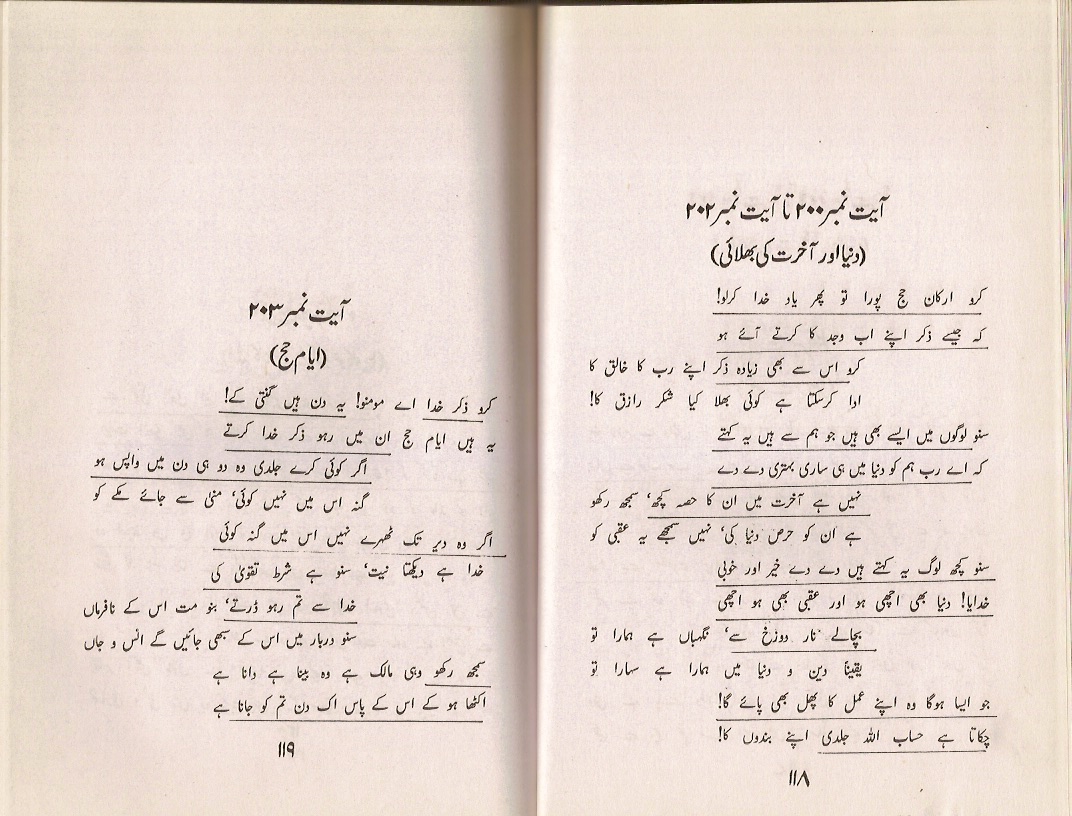 آیت نمبر ۲۰۰ تا آیت نمبر ۲۰۲
(دنیا اور آخرت کی بھلائی)
کرو ارکان حج پورا تو پھر یاد خدا کرلو!
کہ جیسے ذکر اپنے اب وجد کا کرتے آئے ہو
کرو اس سے بھی زیادہ ذکر اپنے رب کا خالق کا
ادا کرسکتا ہے کوئی بھلا کیا شکر رازق کا!
سنو لوگوں میں ایسے بھی ہیں جو ہم سے ہیں یہ کہتے
کہ اے رب ہم کو دنیا میں ہی ساری بہتری دے دے
نہیں ہے آخرت میں ان کا حصہ کچھ‘ سمجھ رکھو
ہے ان کو حرص دنیا کی‘ نہیں سمجھے یہ عقبی کو
سنو کچھ لوگ یہ کہتے ہیں دے دے خیر اور خوبی
خدایا! دنیا بھی اچھی ہو اور عقبی بھی ہو اچھی
بچالے نار دوزخ سے‘ نگہباں ہے ہمارا تو
یقیناً دین و دنیا میں ہمارا ہے سہارا تو
جو ایسا ہوگا وہ اپنے عمل کا پھل بھی پائے گا!
چکاتا ہے حساب اللہ جلدی اپنے بندوں کا!
۱۱۸
آیت نمبر ۲۰۳
(ایام حج)
کرو ذکر خدا اے مومنو! یہ دن ہیں گنتی کے!
یہ ہیں ایام حج ان میں رہو ذکر خدا کرتے
اگر کوئی کرے جلدی وہ دو ہی دن میں واپس ہو
گنہ اس میں نہیں کوئی‘ منیٰ سے جائے مکے کو
اگر وہ دیر تک ٹھہرے نہیں اس میں گنہ کوئی
خدا ہے دیکھتا نیت‘ سنو ہے شرط تقویٰ کی
خدا سے تم رہو ڈرتے‘ بنو مت اس کے نافرماں
سنو دربار میں اس کے سبھی جائیں گے انس و جاں
سمجھ رکھو وہی مالک ہے وہ بینا ہے دانا ہے
اکٹھا ہو کے اس کے پاس اک دن تم کو جانا ہے
۱۱۹